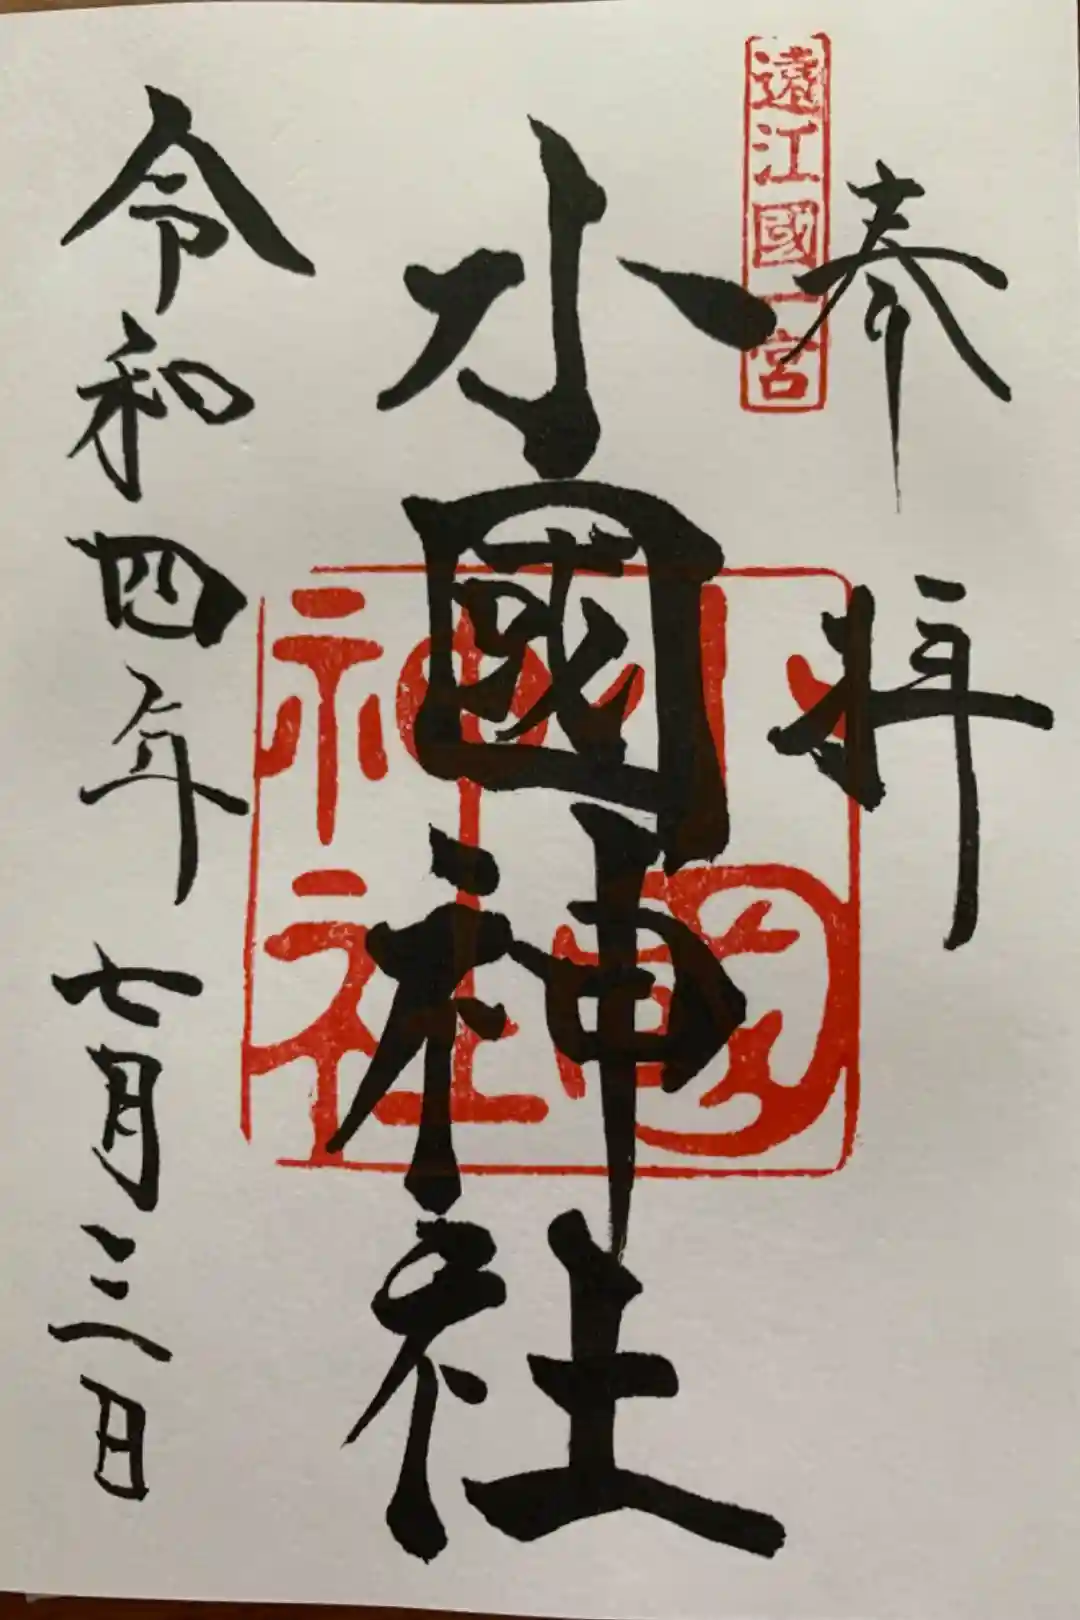 奉拝
遠江國一宮
小國神社
小國神社
令和四年七月三日